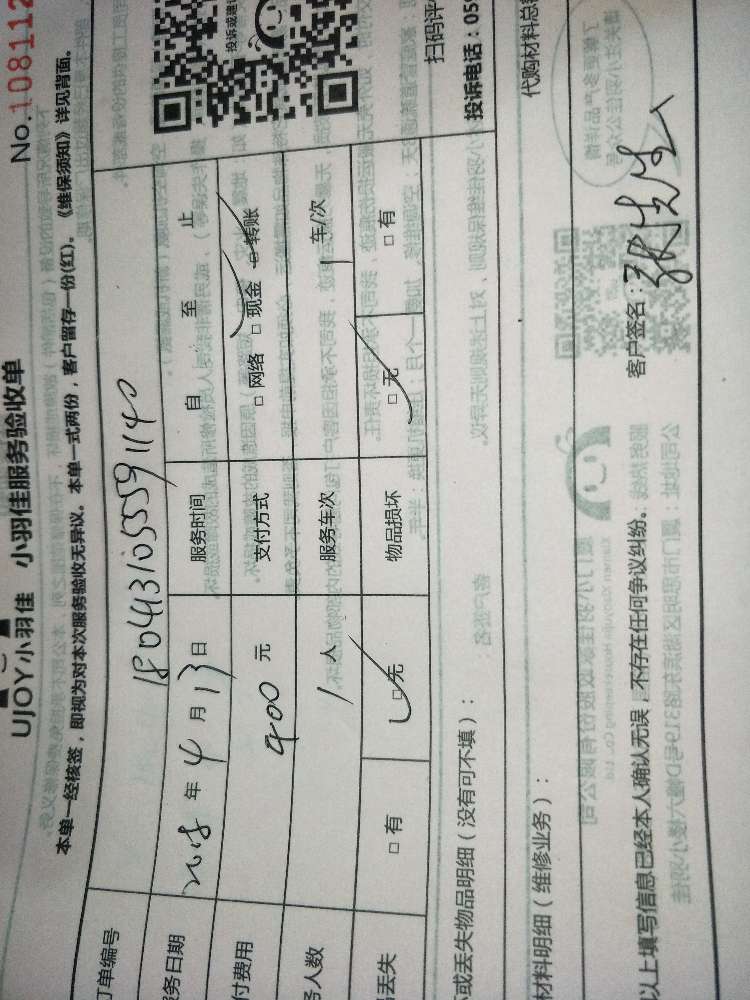 UJOY小羽佳 小羽佳服务验收单
No.108112
本单一经核签，即视为对本次服务验收无异议。本单一式两份，客户留存一份(红)。《维保须知》详见背面。
投诉或建议
扫码评
投诉电话：059
订单编号 1804131055591140
服务日期 2018 年 4 月 13 日 服务时间 自 至 止
付费用 400 元 支付方式 □ 网络 □ 现金 □ 转账
务人数 1 人 服务车次 1 车/次
丢失 □ 有 □ 无 物品损坏 □ 无 □ 有
或丢失物品明细（没有可不填）：
材料明细（维修业务）： 代购材料总
以上填写信息已经本人确认无误，不存在任何争议纠纷。 客户签名：张先生